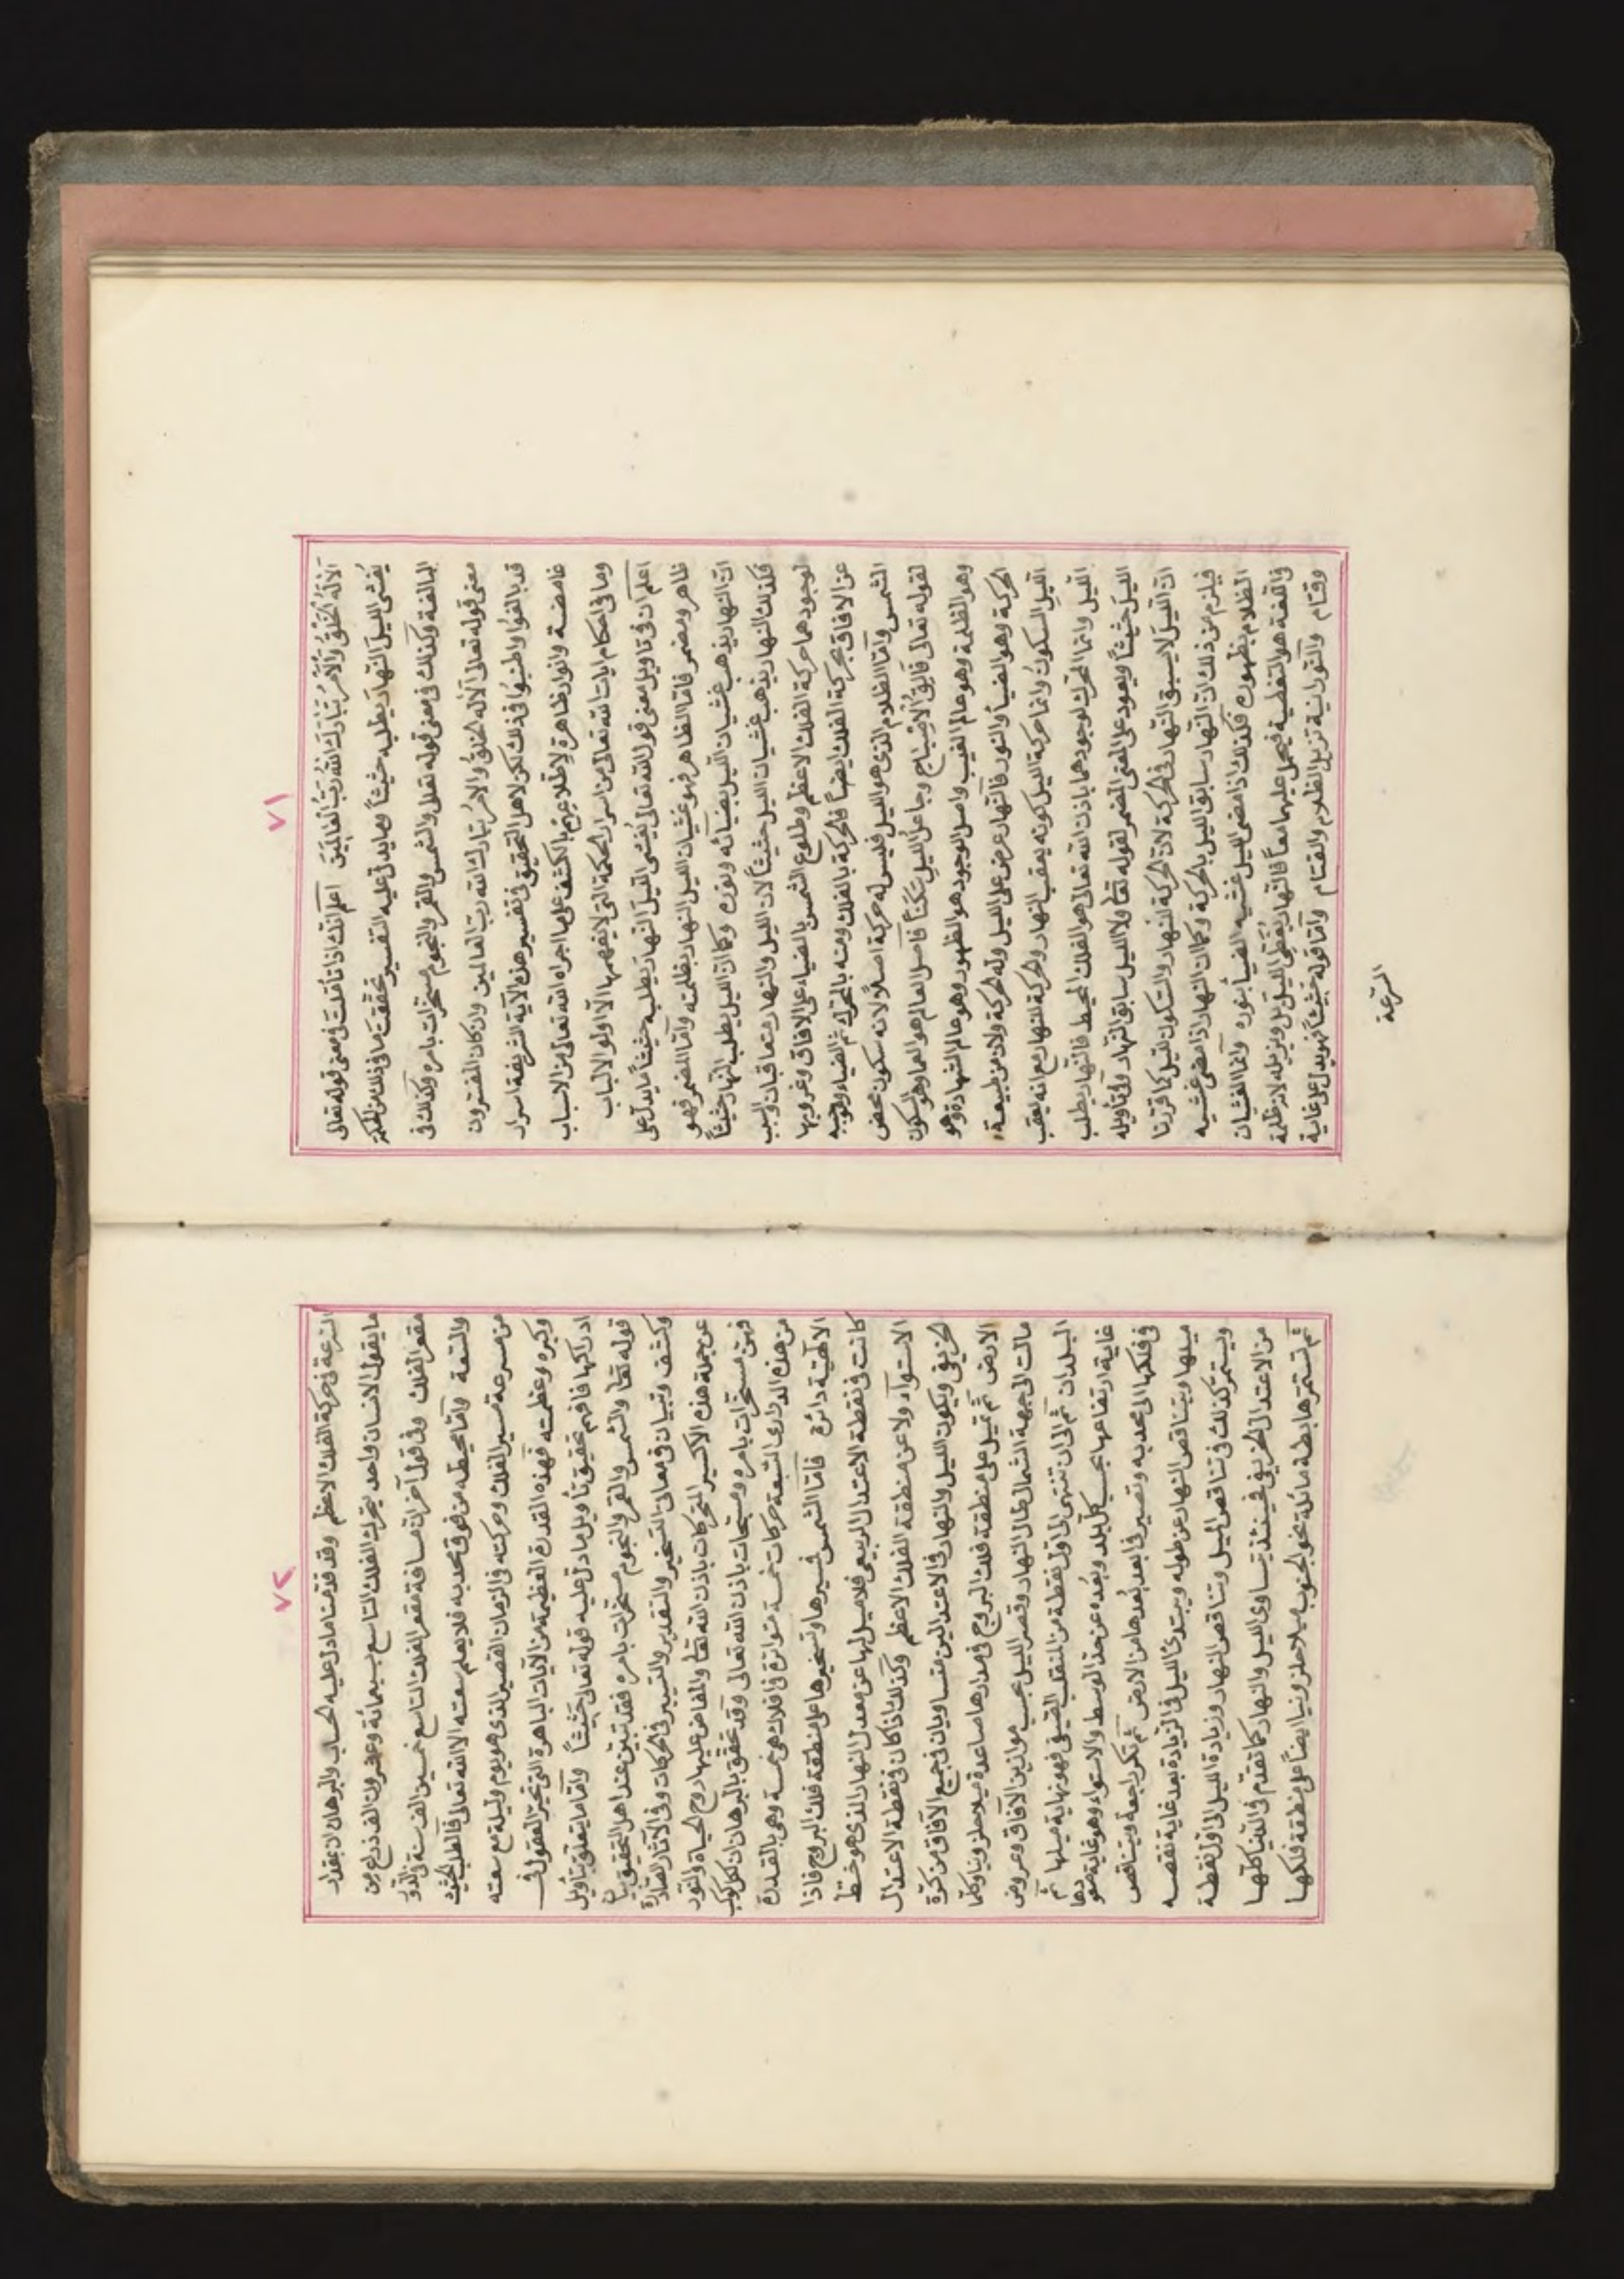 ٧١
الا له الخلق والامر تبارك الله رب العالمين اعلم انك اذا تأملت في معنى قوله تعالى
يغشى الليل النهار يطلبه حثيثاً وما يدل عليه التفسير تحققت ما في ذلك من الحكمة
البالغة وكذلك في معنى قوله تعالى والشمس والقمر والنجوم مسخرات بامره وكذلك في
معنى قوله تعالى الا له الخلق والامر تبارك الله رب العالمين وان كان المفسرون
قد بالغوا واطنبوا في ذلك لكن لاهل التحقيق في تفسير هذه الآية الشريفة اسرار
غامضة وانوار ظاهرة لاطلاعهم بالكشف على ما اجراه الله تعالى من الاسباب
وما في احكام ايات الله تعالى من اسرار الحكمة التي لا يفهمها الا اولو الالباب
اعلم ان في تاويل معنى قول الله تعالى يغشى الليل النهار يطلبه حثيثاً ما يدل على
ظاهر ومضمر فاما الظاهر فهو غشيان الليل النهار بظلمته واما المضمر فهو
ان النهار يذهب غشيان الليل بضيائه ونوره وكما ان الليل يطلب النهار حثيثاً
فكذلك النهار يذهب غشيان الليل حثيثاً لان الليل والنهار متعاقبان والسبب
لوجودهما حركة الفلك الاعظم وطلوع الشمس بالضياء على الافاق وغروبها
عن الافاق بحركة الفلك ايضاً فالحركة بالفلك ومنه بالمتحرك ثم الضياء وموجبه
الشمس واما الظلام الذي هو الليل فليس له حركة اصلاً لانه سكون محض
لقوله تعالى فالق الاصباح وجاعل الليل سكناً فاصل العالم هو العما وهو السكون
وهو الظلمة وهو عالم الغيب واصل الوجود هو الظهور وهو عالم الشهادة وهو
الحركة وهو الضياء والنور فالنهار عرض على الليل وله الحركة ولان من طبيعة
الليل السكون وانما حركة الليل كونه يعقب النهار والحركة للنهار مع انه يعقب
الليل وانما المحرك لوجودهما باذن الله تعالى هو الفلك المحيط فالنهار يطلب
الليل حثيثاً ويعود على المعنى المضمر لقوله تعا ولا الليل سابق النهار وفي تاويله
ان الليل لا يسبق النهار في الحركة لان الحركة للنهار والسكون لليل كما قررنا
فيلزم من ذلك ان النهار سابق الليل بالحركة وكما ان النهار اذا مضى غشيه
الظلام بظهوره فكذلك اذا مضى الليل غشيه الضياء بنوره وانما الغشيان
في اللغة هو التغطية فيحمل عليهما معاً فالنهار يغطي الليل بل ويزيله لان ظلمة
وقتام والنورانية تزيل الظلام والقتام واما قوله حثيثاً فهو يدل على غاية
السرعة
٧٢
السرعة في حركة الفلك الاعظم وقد قدمنا ما دل عليه الحساب والبرهان لا بمقدار
ما يقول الانسان واحد يتحرك الفلك التاسع بسبعمائة وعشرون الف ذراع من
مقعر الفلك وفي قول آخر ان مسافة مقعر الفلك التاسع خمسين الف سنة
والسعة واما محيطه من فوق محدبه فلا يعلم سعته الا الله تعالى فالطلب الحثيث
من سرعة مسير الفلك وحركته في الزمان القصير الذي هو يوم وليلة مع سعته
وكبره وعظمته فهذه القدرة العظيمة من الآيات الباهرة التي تحير العقول في
ادراكها فافهم تحقيق تأويل ما دل عليه قوله تعالى حثيثاً واما ما يتعلق بتاويل
قوله تعا والشمس والقمر والنجوم مسخرات بامره فقد تبين عند اهل التحقيق بيان
وكشف وتبيان في معاني التسخير والتقدير والتسيير في الحركات وفي الآثار الصادرة
عن جملة هذه الاكسير المتحركات باذن الله تعا والمفاض عليها روح الحياة والنور
فهن مسخرات بامره ومسبحات باذن الله تعالى وقد تحقق بالبرهان ان لكل كوكب
من هذه الدراري السبعة حركات خمسة متواترة في افلاك هي خمسة وهي بالقدرة
الالهية دائرة فاما الشمس فسيرها وتسخيرها على منطقة فلك البروج فاذا
كانت في نقطة الاعتدال الربيعي فلا ميل لها عن معدل النهار الذي هو خط
الاستواء ولا عن منطقة الفلك الاعظم وكذلك اذا كان في نقطة الاعتدال
الخريفي ويكون الليل والنهار في الاعتدالين متساويان في جميع الآفاق من كرة
الارض ثم تميل على منطقة فلك البروج في مدارها صاعدة ميلاً حلزونياً وكلما
مالت الى جهة الشمال طال النهار وقصر الليل بحسب موازين الآفاق وعروض
البلدان ثم الى ان تنتهي الى اول نقطة من المنقلب الصيفي فهو نهاية ميلها ثم
غاية ارتفاعها بحسب كل بلد وبعده عن حد الوسط والاستواء وهو غاية صعودها
في فلكها الى محدبه وتصير في ابعد بعدها من الارض ثم تكر راجعة ويتناقص
ميلها ويتناقص النهار عن طوله ويبتدئ الليل في الزيادة بعد غاية نقصه
ويستمر كذلك في تناقص الميل وتناقص النهار وزيادة الليل الى اول نقطة
من الاعتدال الخريفي فحينئذ يتساوى الليل والنهار كما تقدم في الدنيا كلها
ثم تستمر هابطة مائلة نحو الجنوب ميلا حلزونيا ايضاً على منطقة فلكها